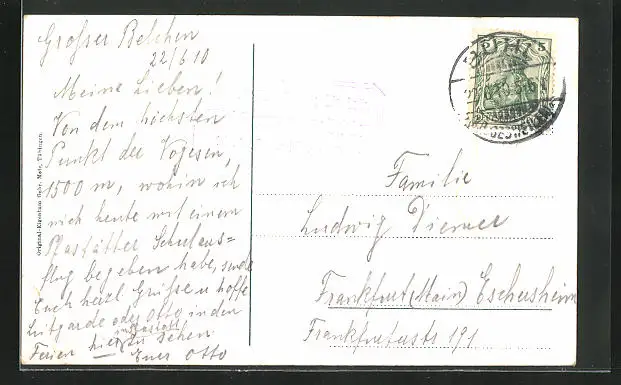 Großer Belchen
22/6 10
Meine Lieben!
Von dem höchsten
Punkt der Vogesen,
1500 m, wohin ich
mich heute mit einem
Pfastätter Schulaus=
flug begeben habe, sende
Euch herzl. Grüße u hoffe
Luitgarde oder Otto in den
Ferien hier in Pfastatt zu sehen
Euer Otto
Original-Eigentum Gebr. Metz, Tübingen.
5
Familie
Ludwig Diemer
Frankfurt (Main) Eschersheim
Frankfurterstr 191